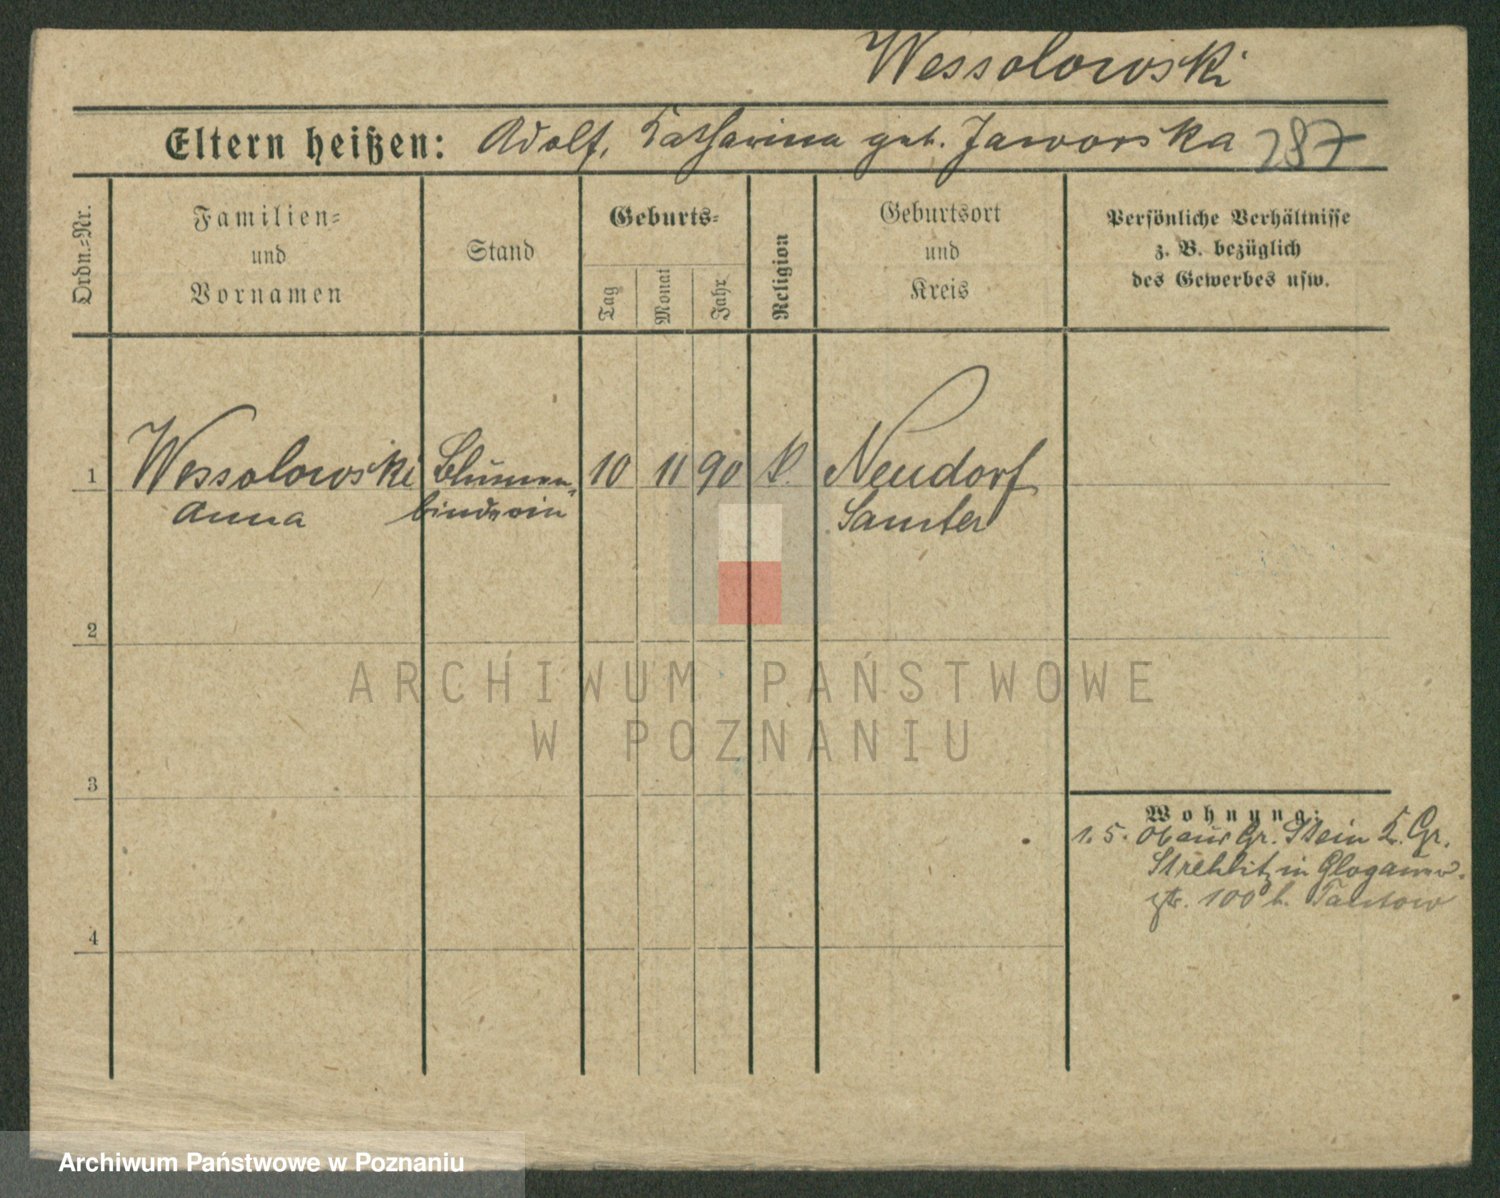 Wessolowski
Eltern heißen: Adolf, Katharina geb. Jaworska 287
Ordn.=Nr.
Familien=
und
Vornamen
Stand
Geburts=
Tag
Monat
Jahr
Religion
Geburtsort
und
Kreis
Persönliche Verhältnisse
z. B. bezüglich
des Gewerbes usw.
1 Wessolowski Blumen= 10 11 90 k. Neudorf
Anna binderin Samter
2
3
4
Wohnung:
1. 5. aus Gr. Stein K. Gr.
Strehlitz in Glogauer
str. 100 b.
ARCHIWUM PAŃSTWOWE
W POZNANIU
Archiwum Państwowe w Poznaniu